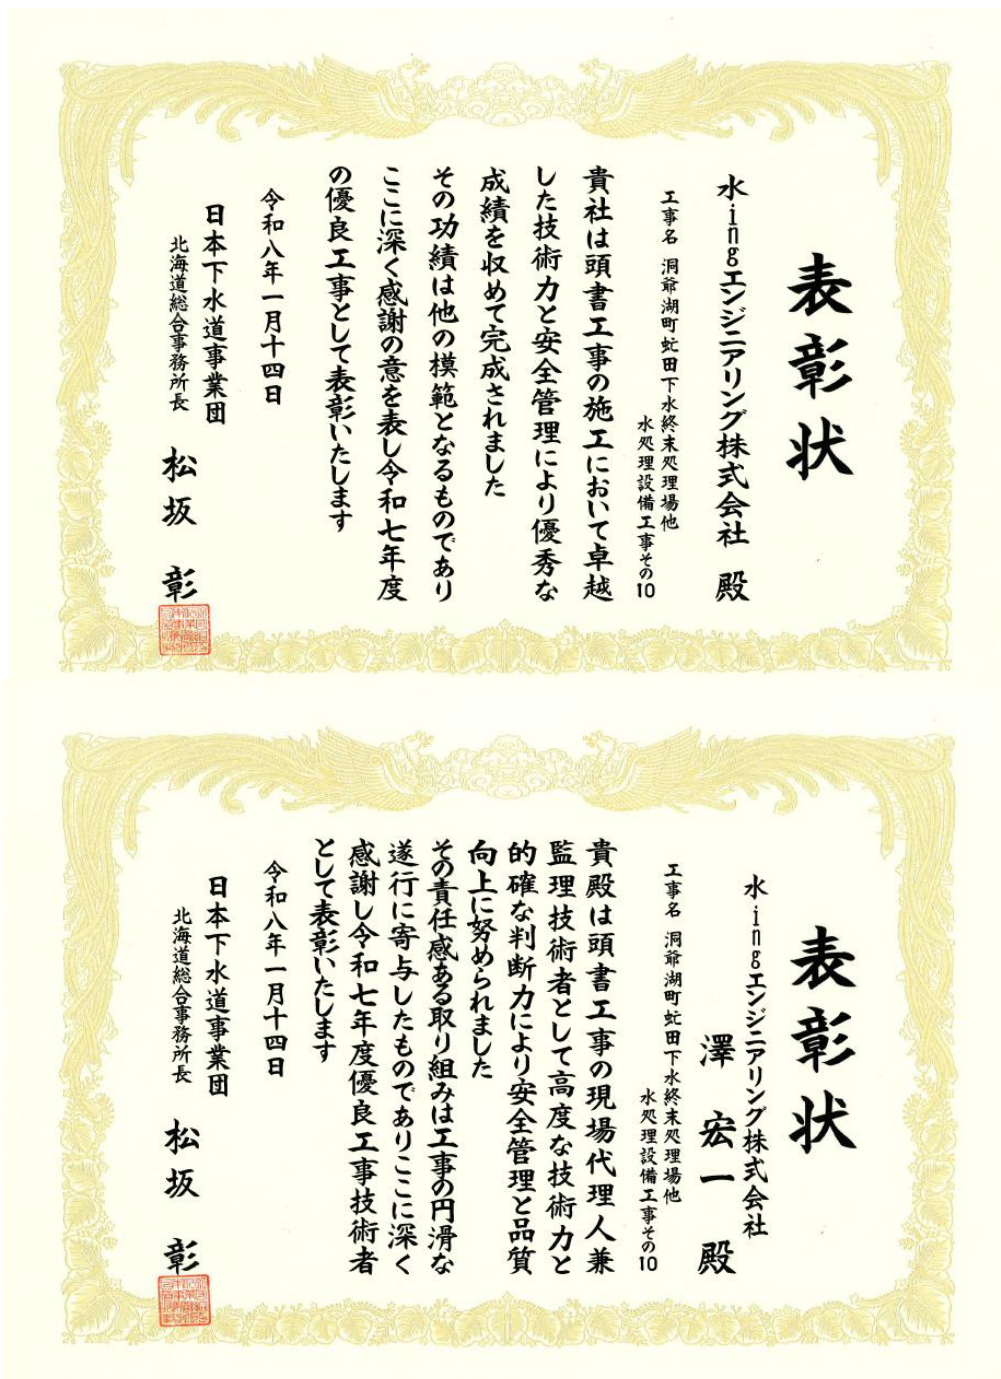 表彰状
水ingエンジニアリング株式会社 殿
工事名 洞爺湖町虻田下水終末処理場他
水処理設備工事その10
貴社は頭書工事の施工において卓越
した技術力と安全管理により優秀な
成績を収めて完成されました
その功績は他の模範となるものであり
ここに深く感謝の意を表し令和七年度
の優良工事として表彰いたします
令和八年一月十四日
日本下水道事業団
北海道総合事務所長
松坂 彰
表彰状
水ingエンジニアリング株式会社
澤 宏一 殿
工事名 洞爺湖町虻田下水終末処理場他
水処理設備工事その10
貴殿は頭書工事の現場代理人兼
監理技術者として高度な技術力と
的確な判断力により安全管理と品質
向上に努められました
その責任感ある取り組みは工事の円滑な
遂行に寄与したものでありここに深く
感謝し令和七年度優良工事技術者
として表彰いたします
令和八年一月十四日
日本下水道事業団
北海道総合事務所長
松坂 彰